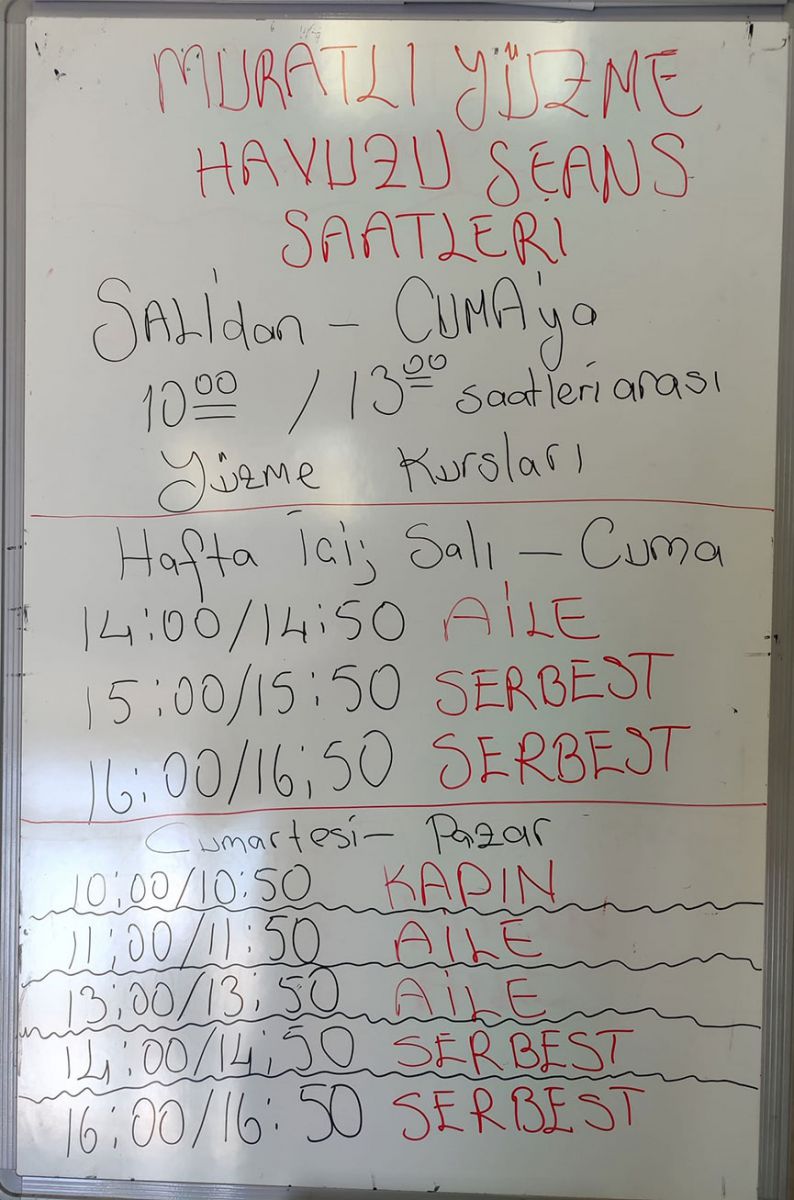 MURATLI YÜZME
HAVUZU SEANS
SAATLERI
SALI'dan - CUMA'ya
10:00 / 13:00 saatleri arası
Yüzme Kursları
Hafta İçi; Salı - Cuma
14:00/14:50 AİLE
15:00/15:50 SERBEST
16:00/16:50 SERBEST
Cumartesi - Pazar
10:00/10:50 KADIN
11:00/11:50 AİLE
13:00/13:50 AİLE
14:00/14:50 SERBEST
16:00/16:50 SERBEST